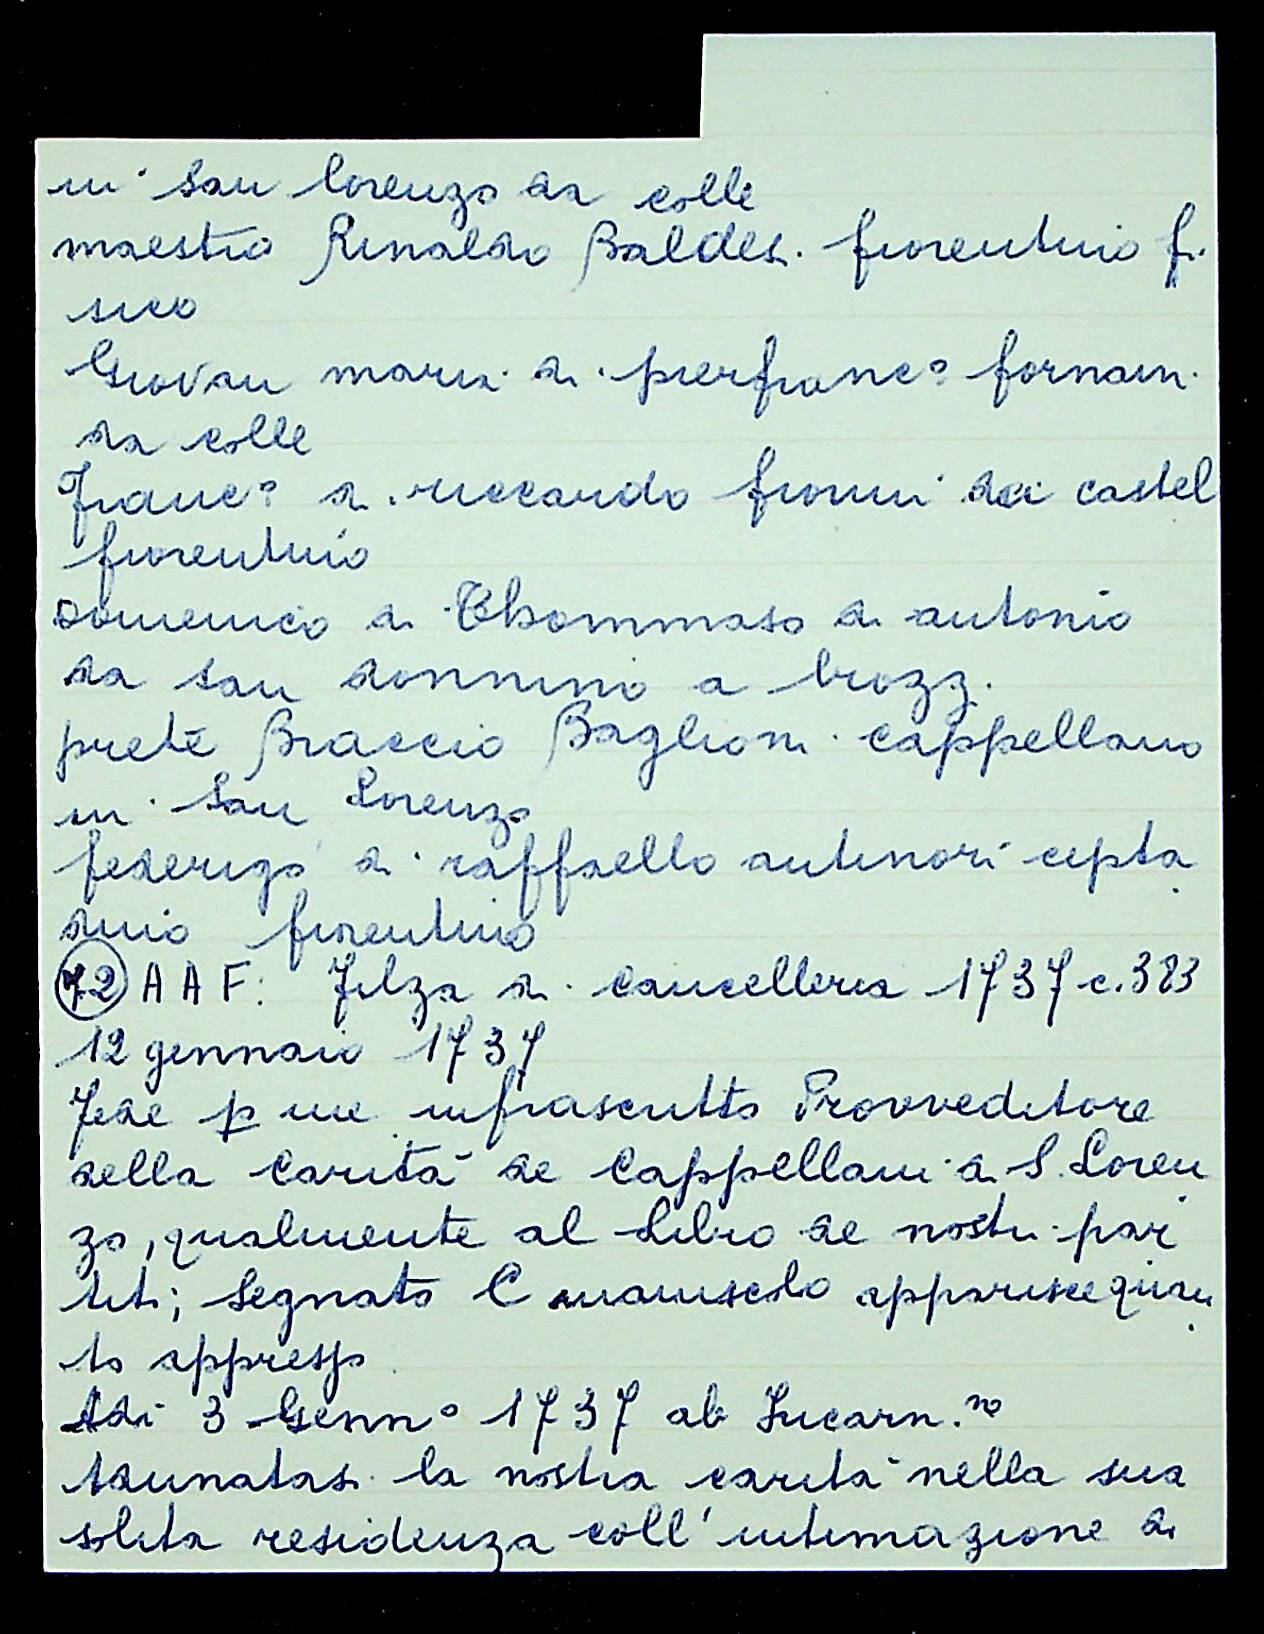 in San Lorenzo da colle
maestro Rinaldo Baldesi fiorentino fi
sico
Giovan maria di pierfranc° fornaini
da colle
Franc° di riccardo fronini da castel
fiorentino
Domenico di Thommaso di antonio
da san donnino a brozzi
prete Braccio Baglioni cappellano
in San Lorenzo
federigo di raffaello antinori cipta
dino fiorentino
72 A A F: Filza di cancelleria 1737 c. 383
12 gennaio 1737
Fede p me infrascritto Provveditore
della Carità de Cappellani di S. Loren
zo, qualmente al Libro de nostri par
titi; Segnato C apparisce quan
to appresso
Adi 3 Genn° 1737 ab Incarn.ne
Adunatasi la nostra carità nella sua
solita residenza coll'intimazione di